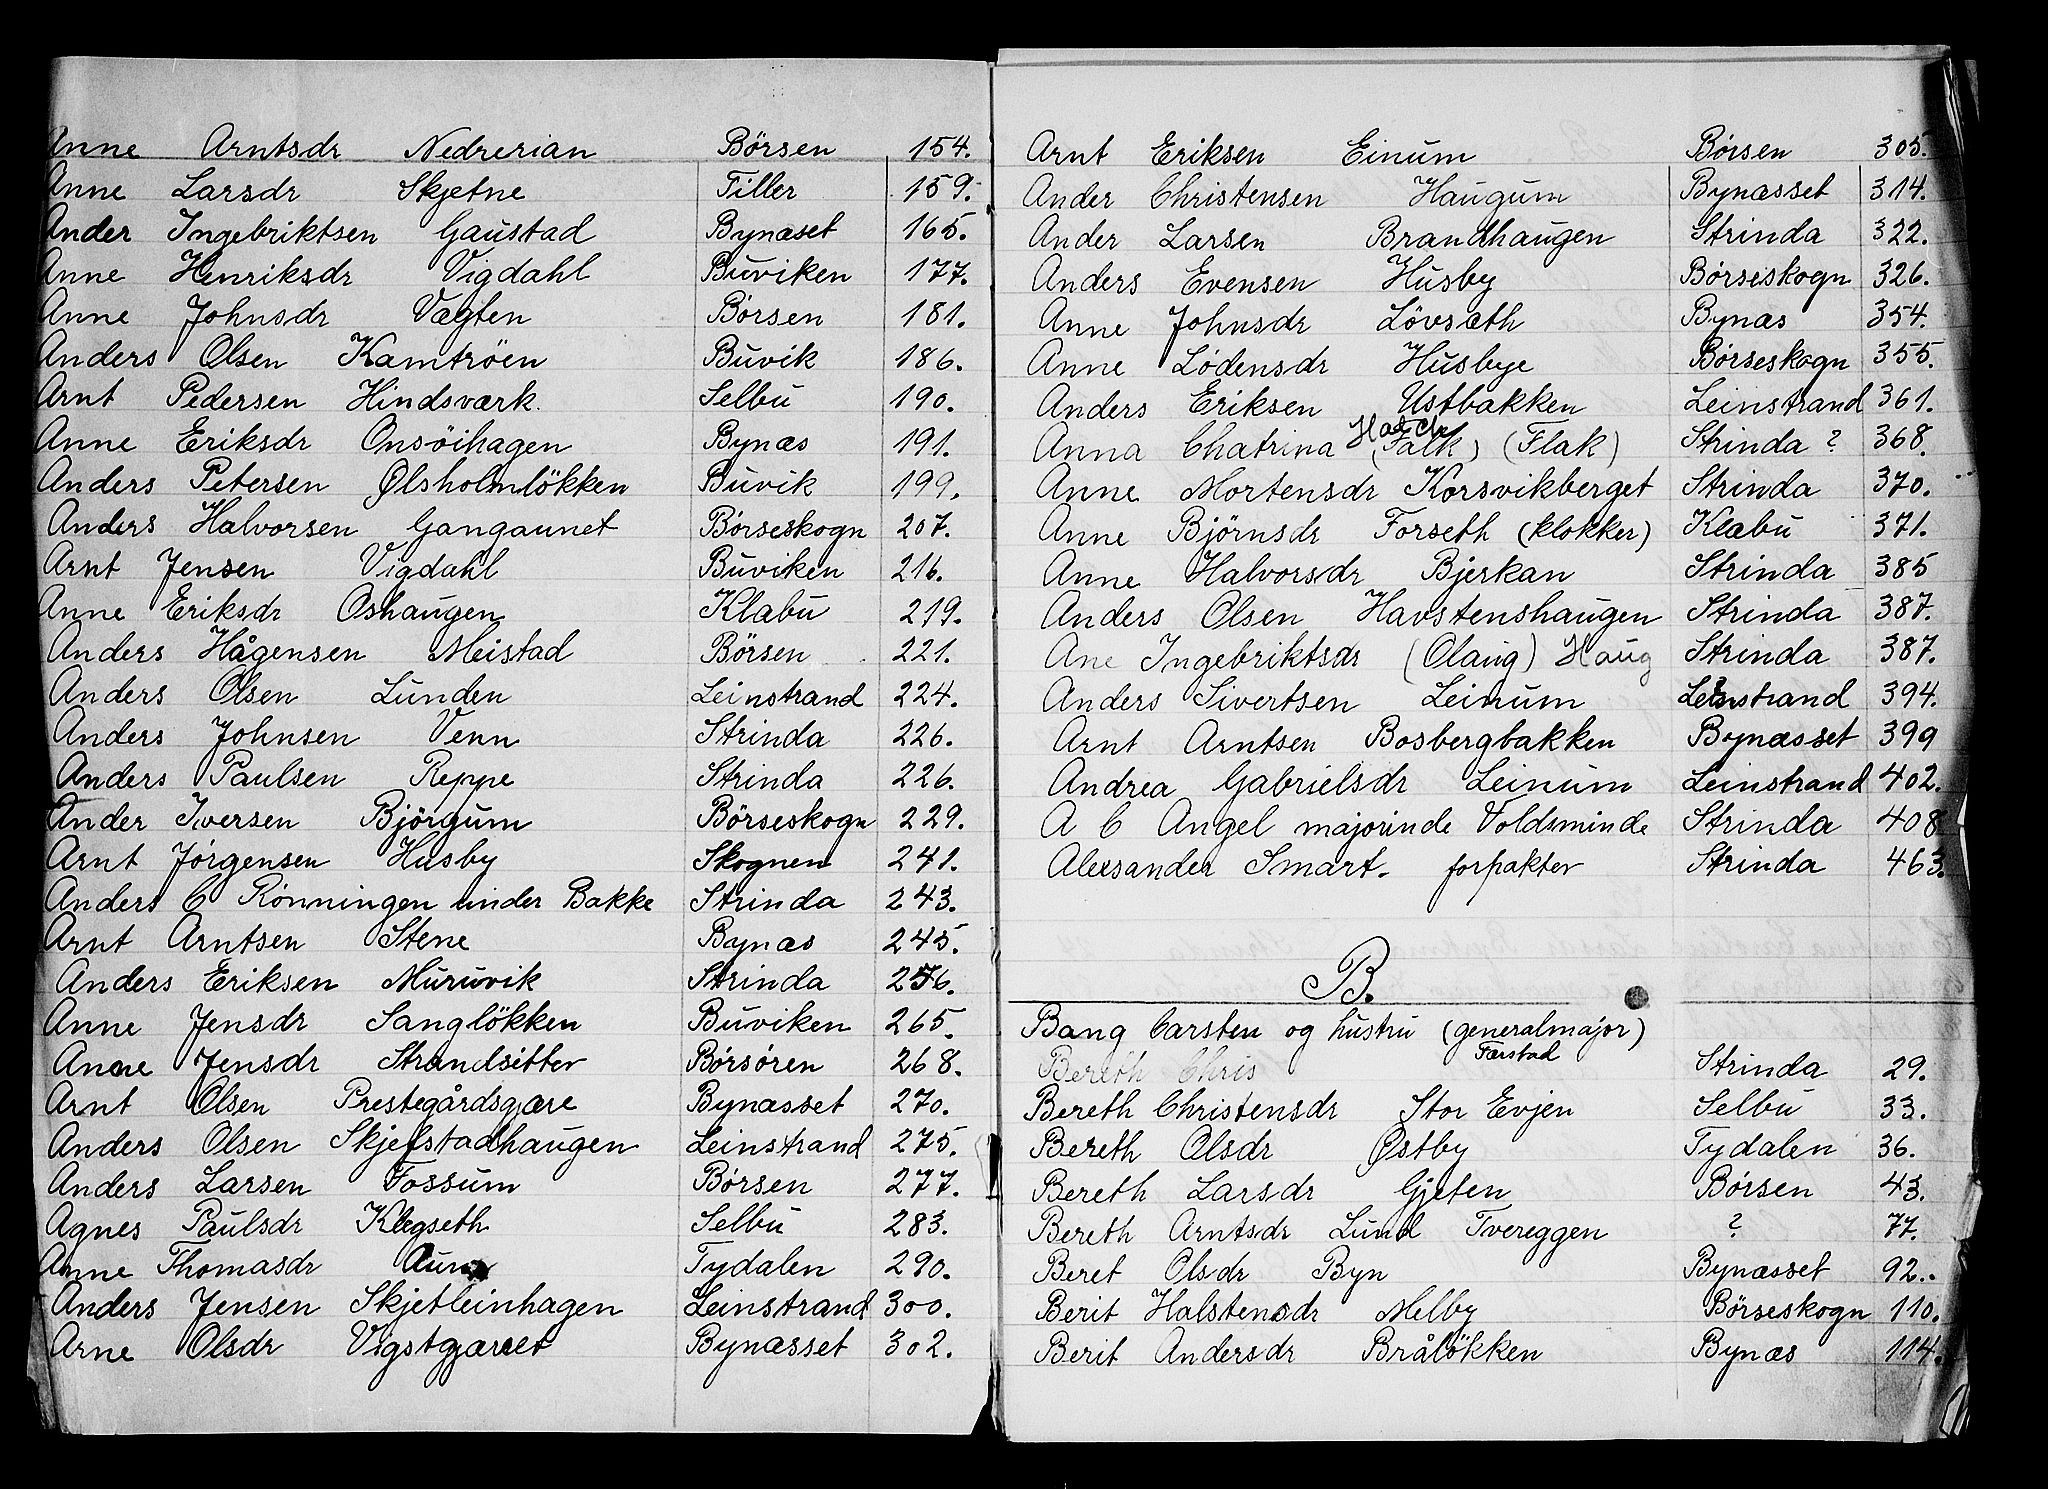 Anne Arntsdr Nedrerian Börsen 154.
Anne Larsdr Skjetne Tiller 159.
Ander Ingebriktsen Gaustad Bynæset 165.
Anne Henriksdr Vigdahl Buviken 177.
Anne Johnsdr Vægten Börsen 181.
Anders Olsen Kamtröen Buvik 186.
Arnt Pedersen Hindsværk. Selbu 190.
Anne Eriksdr Onsöihagen Bynæs 191.
Anders Petersen Ølsholmlökken Buvik 199.
Anders Halvorsen Gangaunet Börseskogn 207.
Arnt Jensen Vigdahl Buviken 216.
Anne Eriksdr Oshaugen Klæbu 219.
Anders Hågensen Meistad Börsen 221.
Anders Olsen Lunden Leinstrand 224.
Anders Johnsen Venn Strinda 226.
Anders Paulsen Reppe Strinda 226.
Ander Iversen Björgum Börseskogn 229.
Arnt Jörgensen Husby Skognen 241.
Anders C Rönningen under Bakke Strinda 243.
Arnt Arntsen Stene Bynæs 245.
Anders Eriksen Muruvik Strinda
Anne Jensdr Sanglökken Buviken 265.
Anne Jensdr Strandsitter Börsören 268.
Arnt Olsen Prestegårdsgjære Bynæsset 270.
Anders Olsen Skjefstadhaugen Leinstrand 275.
Anders Larsen Fossum Börsen 277.
Agnes Paulsdr Klegseth Selbu 283.
Anne Thomasdr Aune Tydalen 290.
Anders Jensen Skjetleinhagen Leinstrand 300.
Arne Olsdr Bynæsset 302.
Arnt Eriksen Einum Börsen 305.
Ander Christensen Haugum Bynæsset 314.
Ander Larsen Brandhaugen Strinda 322.
Anders Evensen Husby Börseskogn 326.
Anne Johnsdr Lövsæth Bynæs 354.
Anne Lodensdr Husbye Börseskogn 355.
Anders Eriksen Ustbakken Leinstrand 361.
Anna Chatrina (Falk) (Flak) Strinda ? 368.
Anne Mortensdr Korsvikberget Strinda 370.
Anne Björnsdr Forseth (klokker) Klæbu 371.
Anne Halvorsdr Bjerkan Strinda 385
Anders Olsen Havstenshaugen Strinda 387.
Ane Ingebriktsdr (Olaug) Haug Strinda 387.
Anders Sivertsen Leinum Leinstrand 394.
Arnt Arntsen Bosbergbakken Bynæsset 399
Andrea Gabrielsdr Leinum Leinstrand 402.
A C Angel majorinde Voldsminde Strinda 408
Alexsander Smart. forpakter Strinda 463.
B.
Bang Carsten og hustru (generalmajor)
Bereth Chris Færstad Strinda 29.
Bereth Christensdr Stor Evjen Selbu 33.
Bereth Olsdr Østby Tydalen 36.
Bereth Larsdr Gjeten Börsen 43.
Bereth Arntsdr Lund Tvereggen ? 77.
Beret Olsdr Byn Bynæsset 92.
Berit Halstensdr Melby Börseskogn 110.
Berit Andersdr Brålökken Bynæs 114.